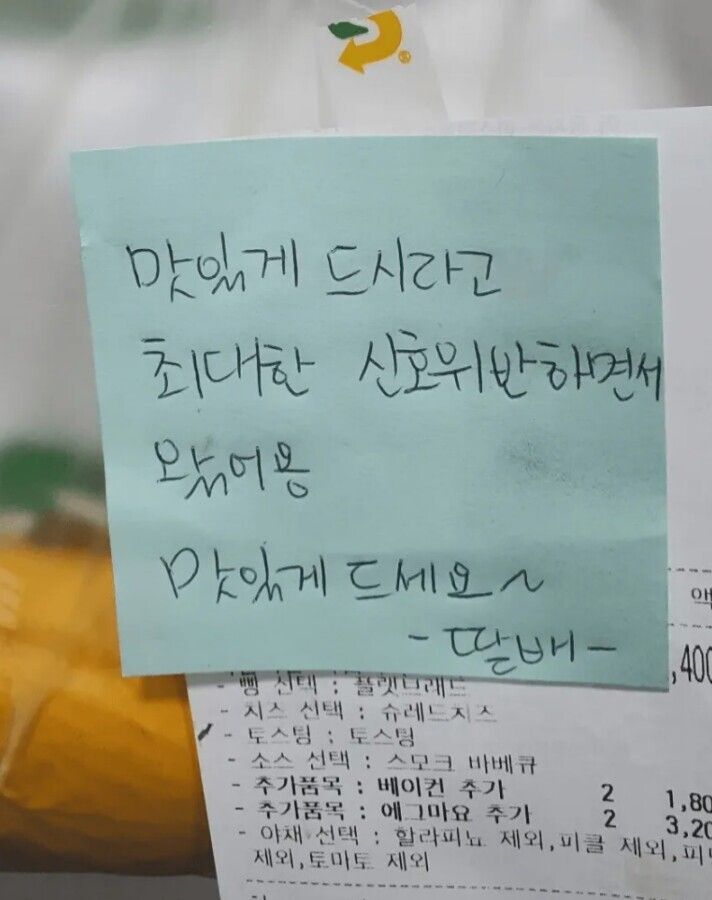 맛있게 드시라고
최대한 신호위반하면서
왔어용
맛있게 드세요~
-딸배-
액
,400
- 빵 선택 : 플랫브레드
- 치즈 선택 : 슈레드치즈
- 토스팅 : 토스팅
- 소스 선택 : 스모크 바베큐
- 추가품목 : 베이컨 추가 2 1,80
- 추가품목 : 에그마요 추가 2 3,20
- 야채 선택 : 할라피뇨 제외,피클 제외,피
제외,토마토 제외